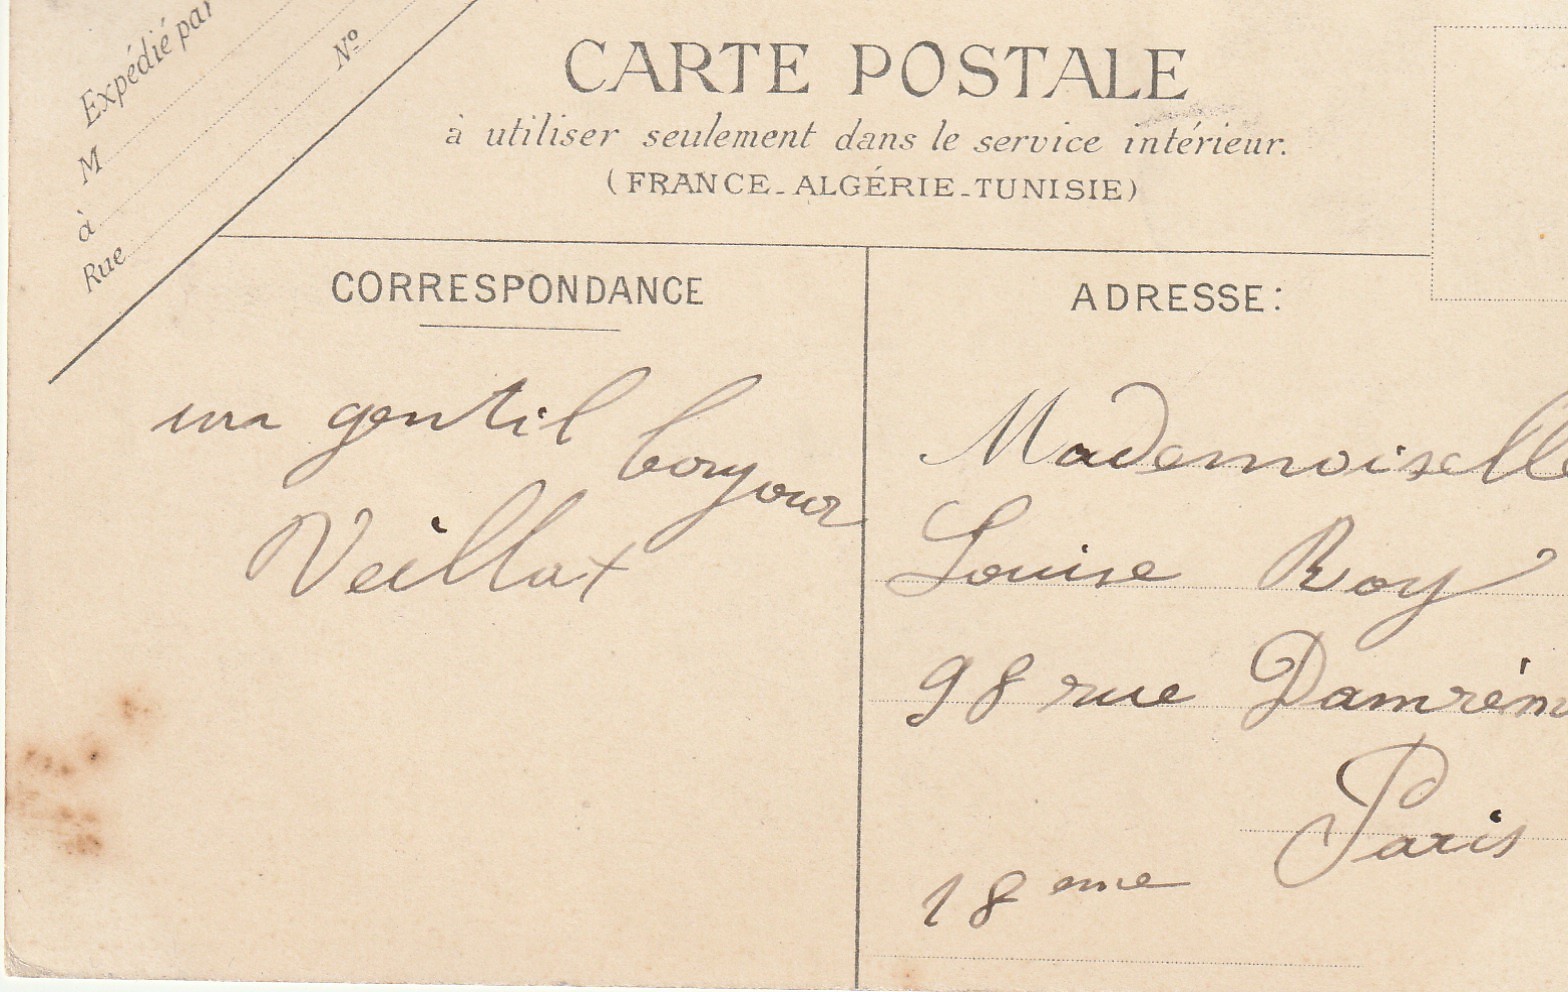 Expédié par
M
à
Rue
N°
CARTE POSTALE
à utiliser seulement dans le service intérieur.
(FRANCE-ALGÉRIE-TUNISIE)
CORRESPONDANCE
un gentil bonjour
ADRESSE:
Mademoiselle
Louise Roy
98 rue Damrém
Paris
18eme